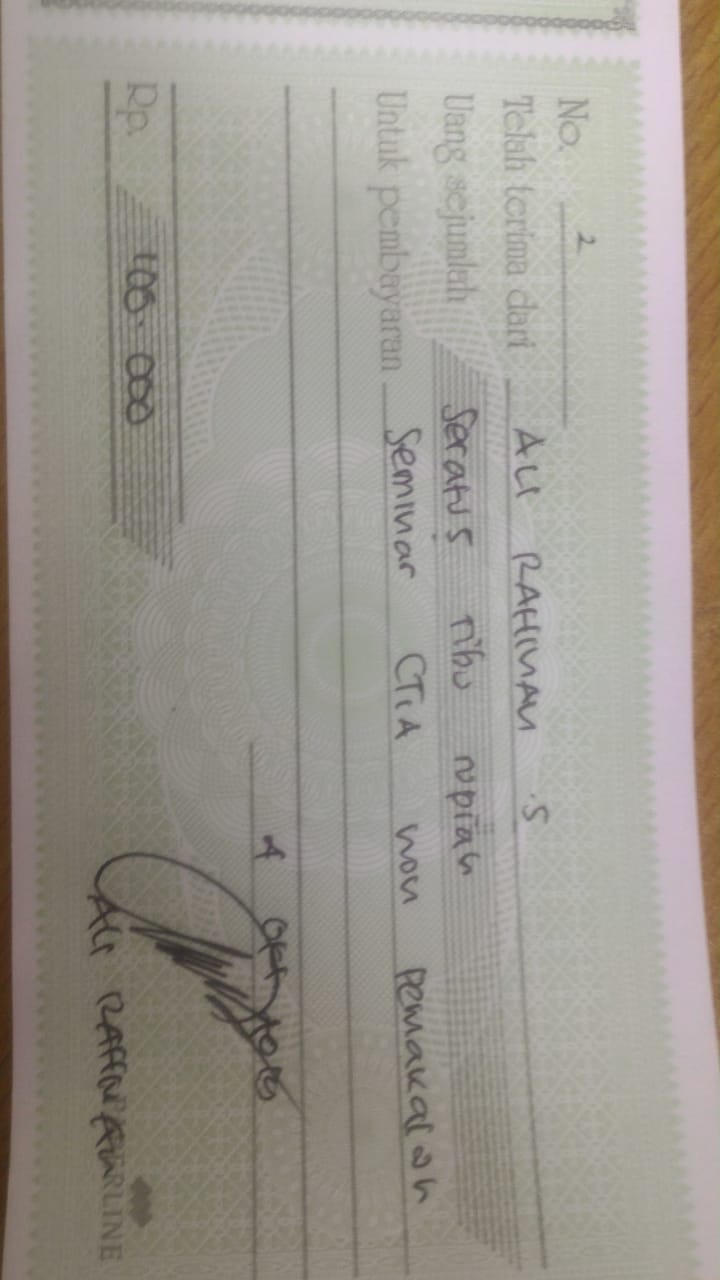 No. 2
Telah terima dari ALI RAHMAN .S
Uang sejumlah Seratus ribu rupiah
Untuk pembayaran Seminar CTIA non pemakalah
4
Rp. 100.000
ALI